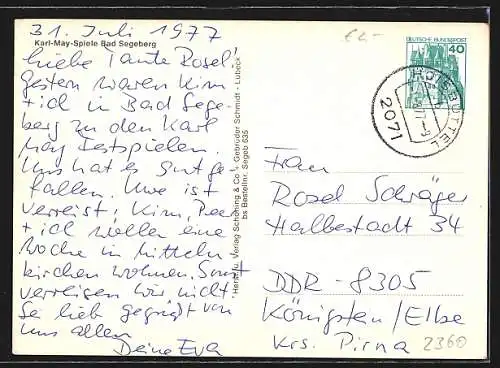 31. Juli 1977
Karl-May-Spiele Bad Segeberg
Liebe Tante Rosel!
Gestern waren Kim
+ ich in Bad Sege-
berg zu den Karl
May Festspielen.
Uns hat es gut ge-
fallen. Uwe ist
verreist, Kim,
+ ich wollen eine
Woche in
kirchen wohnen. Sonst
verreisen wir nicht.
Sei lieb gegrüßt von
uns allen
Deine Eva
Verlag Schöning & Co + Gebrüder Schmidt - Lübeck
bs Bestellnr. Segeb 635
€2,-
DEUTSCHE BUNDESPOST
40
HOISBÜTTEL
2071
Frau
Rosel
Halbestadt 34
DDR-8305
Königstein/Elbe
Krs. Pirna
2360